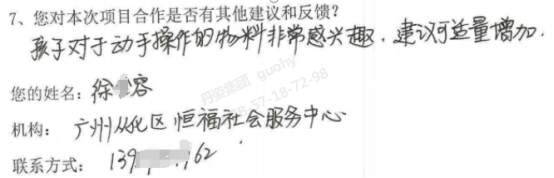 7、您对本次项目合作是否有其他建议和反馈?
孩子对于动手操作的物料非常感兴趣，建议可适量增加.
您的姓名：徐 容
机构：广州从化区恒福社会服务中心
联系方式：139 162